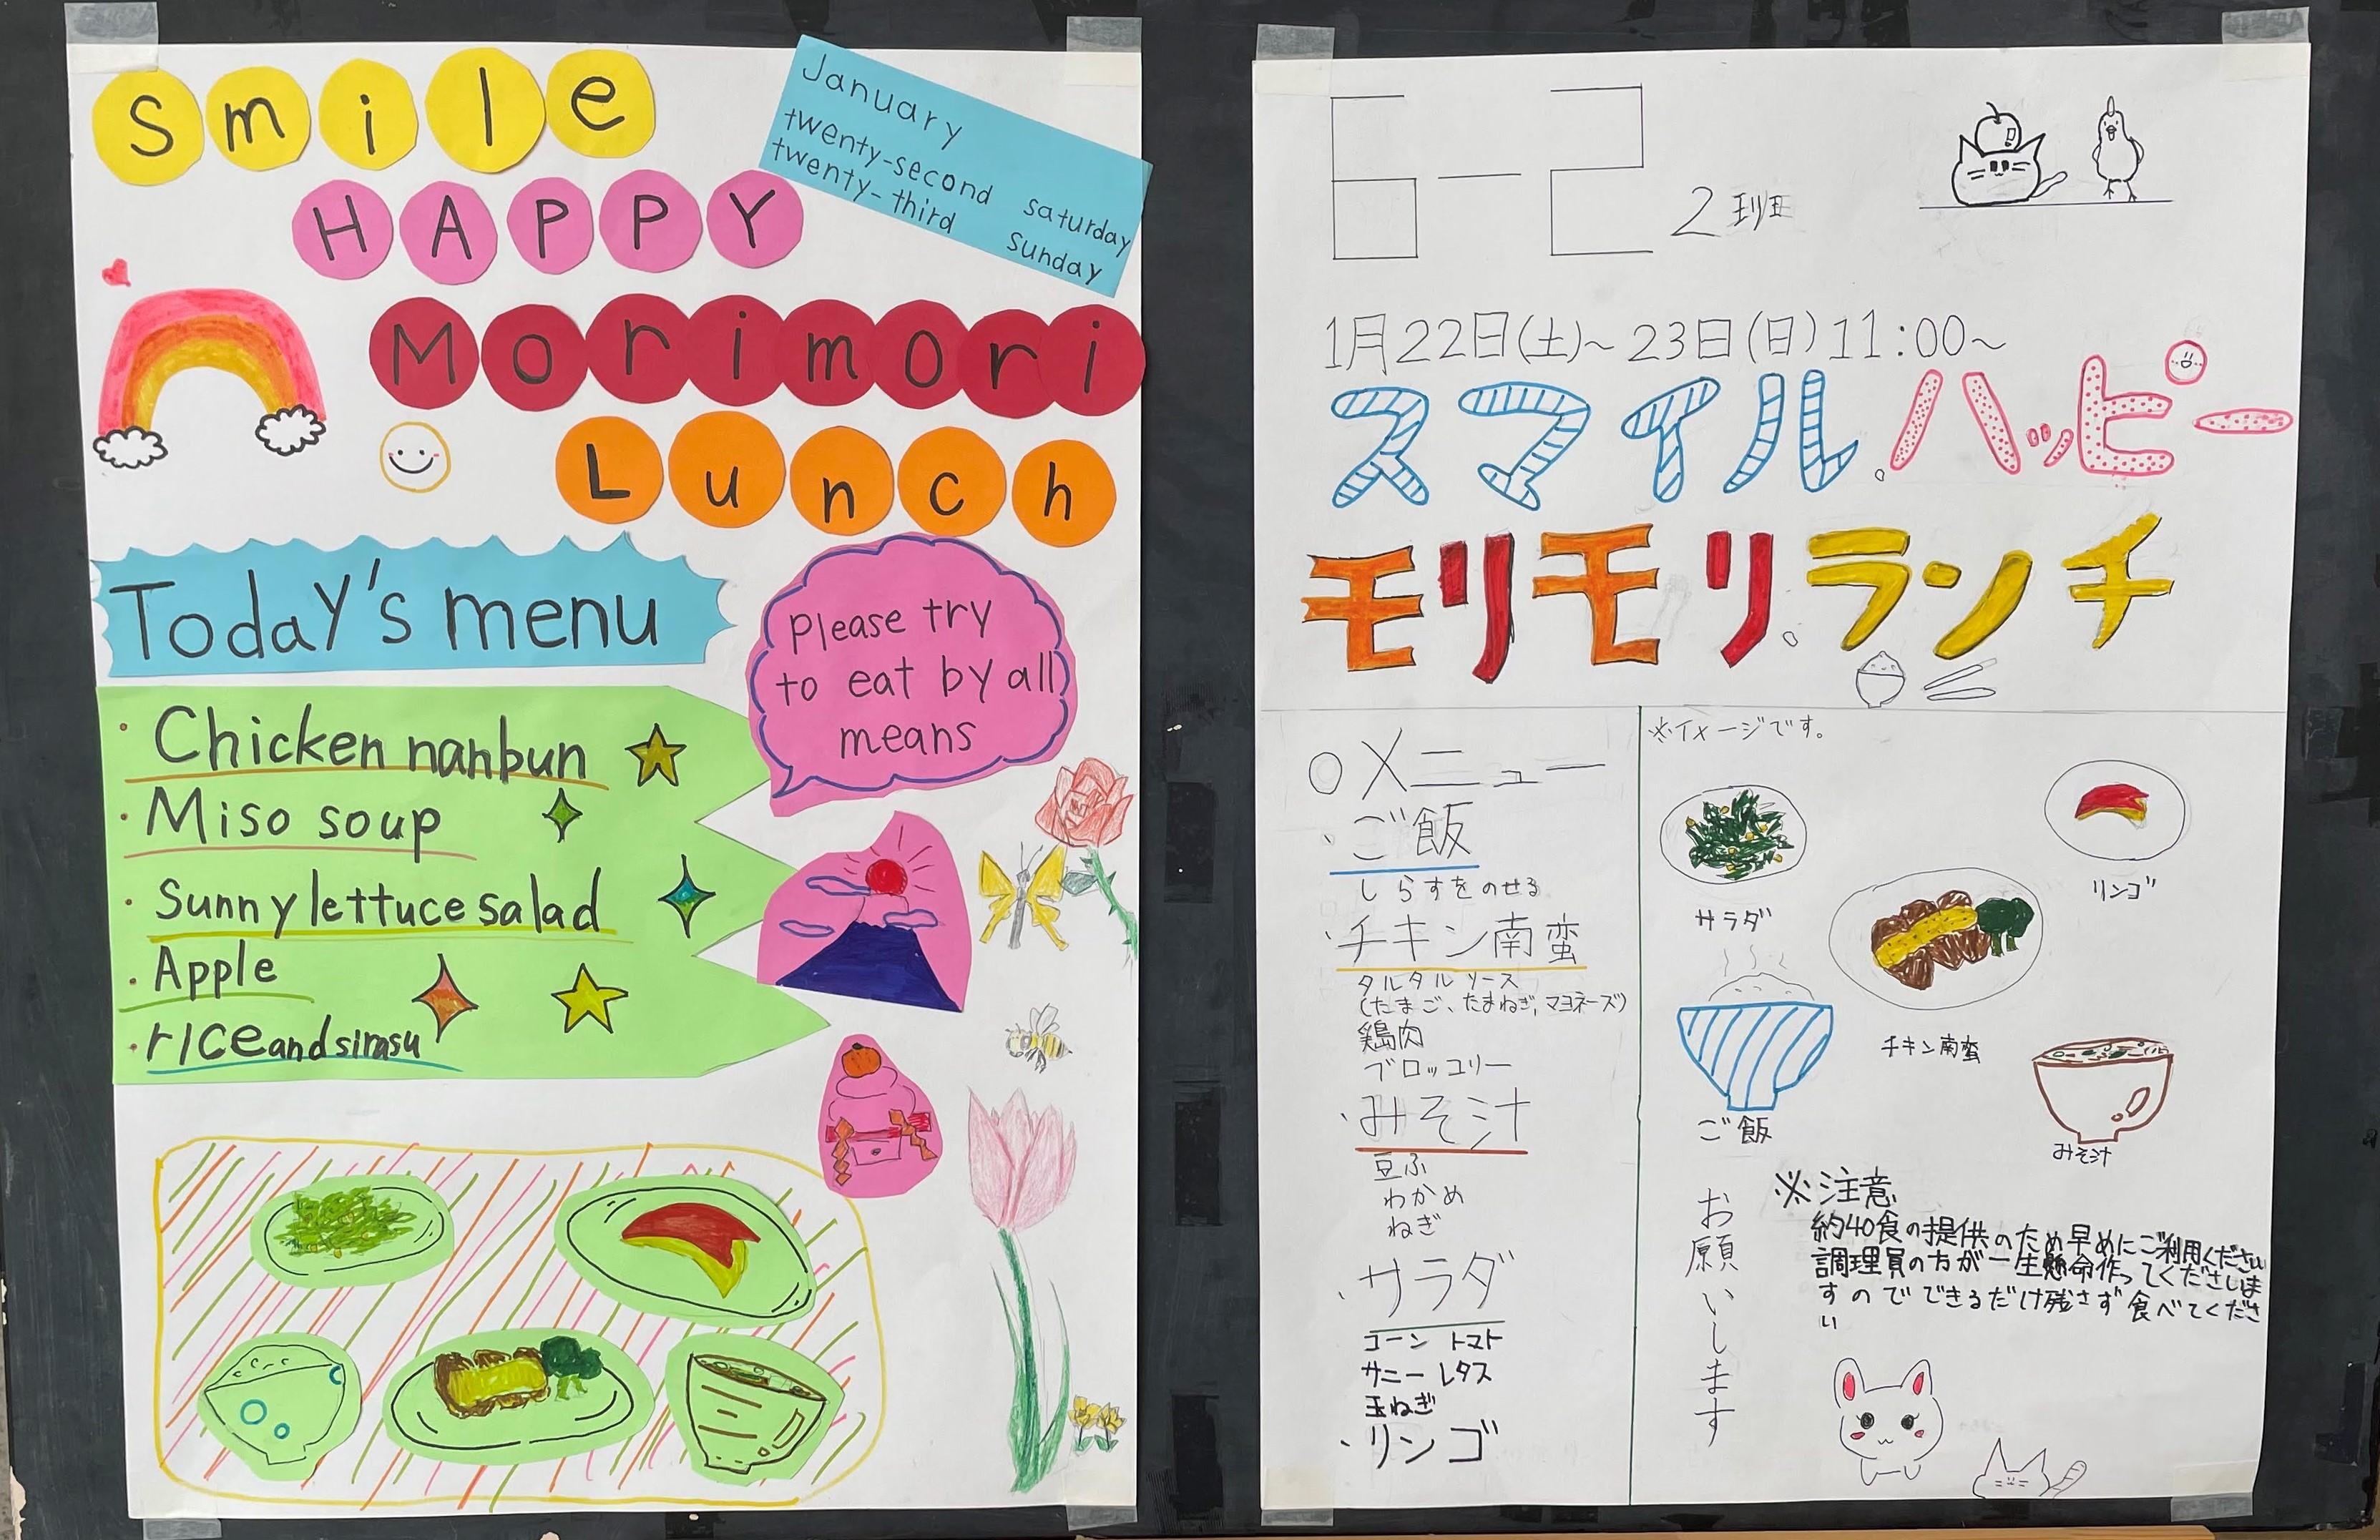 Smile
HAPPY
Morimori
Lunch
January
twenty-second saturday
twenty-third sunday
Today's menu
Please try
to eat by all
means
・Chicken nanbun
・Miso soup
・Sunny lettuce salad
・Apple
・rice and sirasu
6-2
2班
1月22日(土)~23日(日)11:00~
スマイル。ハッピー
モリモリ。ランチ
○メニュー
・ご飯
しらすをのせる
・チキン南蛮
タルタルソース
(たまご、たまねぎ、マヨネーズ)
鶏肉
ブロッコリー
・みそ汁
豆ふ
わかめ
ねぎ
・サラダ
コーン トマト
サニーレタス
玉ねぎ
・リンゴ
※イメージです。
サラダ
リンゴ
チキン南蛮
ご飯
みそ汁
※注意
約40食の提供のため早めにご利用ください
調理員の方が一生懸命作ってくださいま
すのでできるだけ残さず食べてくださ
い
お願いします